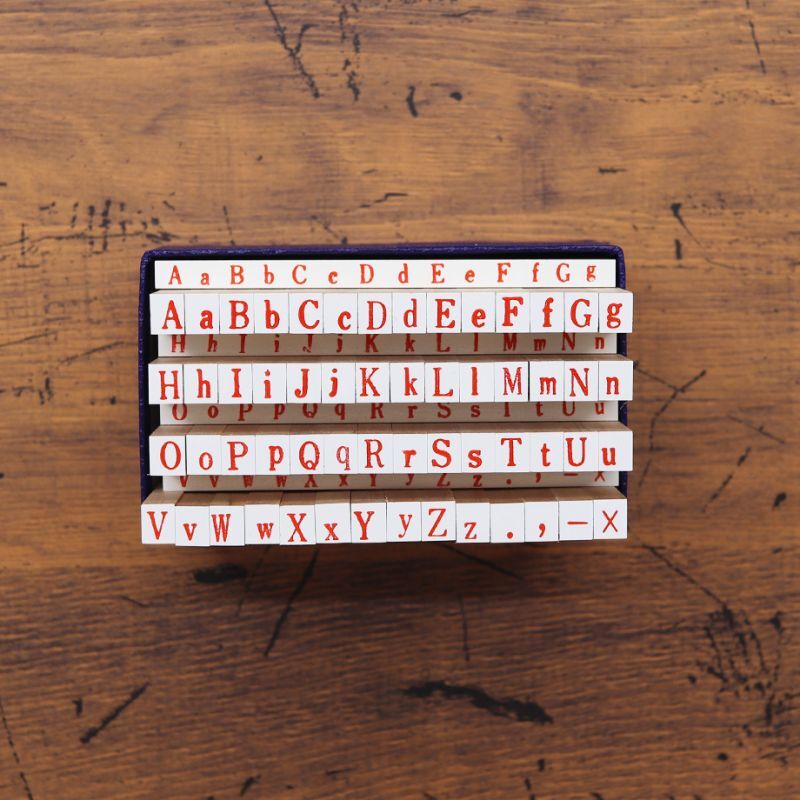 A a B b C c D d E e F f G g
A a B b C c D d E e F f G g
H h I i J j K k L l M m N n
H h I i J j K k L l M m N n
O o P p Q q R r S s T t U u
O o P p Q q R r S s T t U u
V v W w X x Y y Z z . , - ×
V v W w X x Y y Z z . , - ×